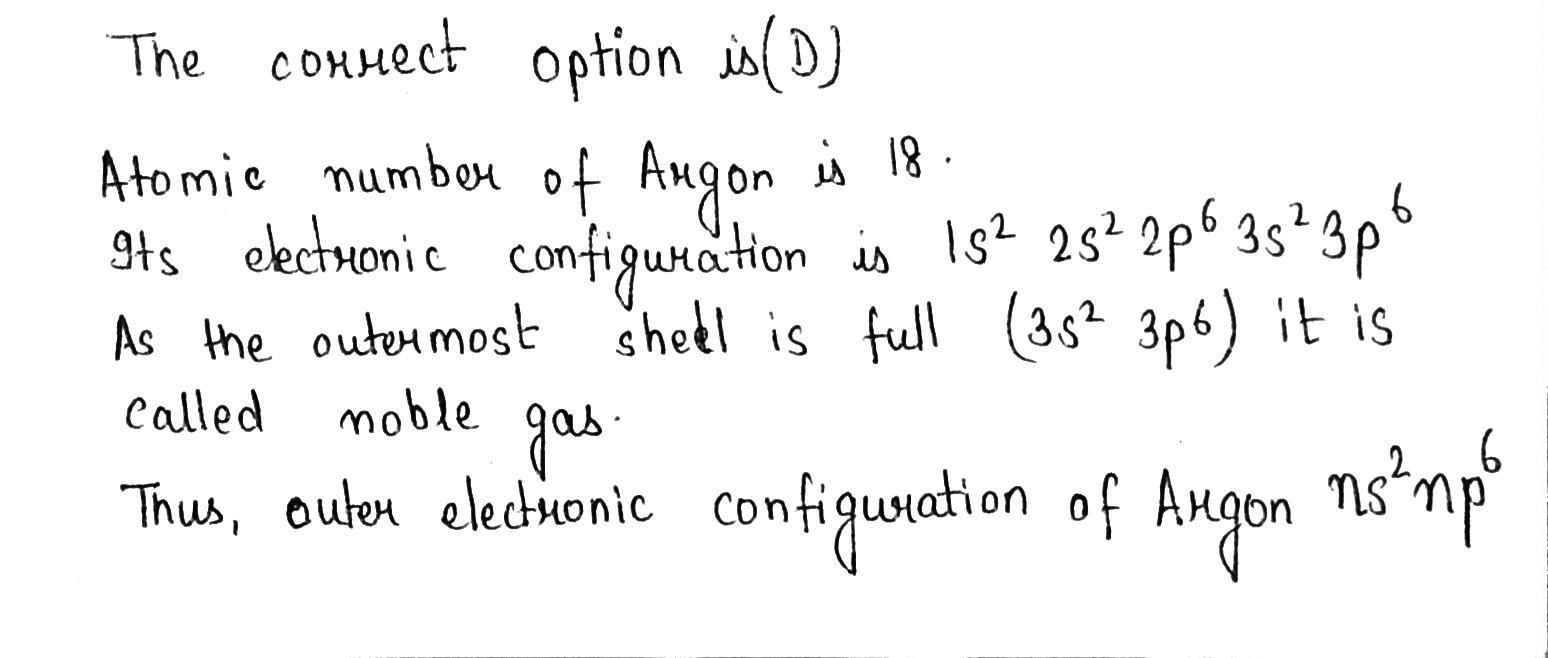 The correct option is (D)
Atomic number of Argon is 18.
Its electronic configuration is 1s² 2s² 2p⁶ 3s² 3p⁶
As the outermost shell is full (3s² 3p⁶) it is
called noble gas.
Thus, outer electronic configuration of Argon ns² np⁶